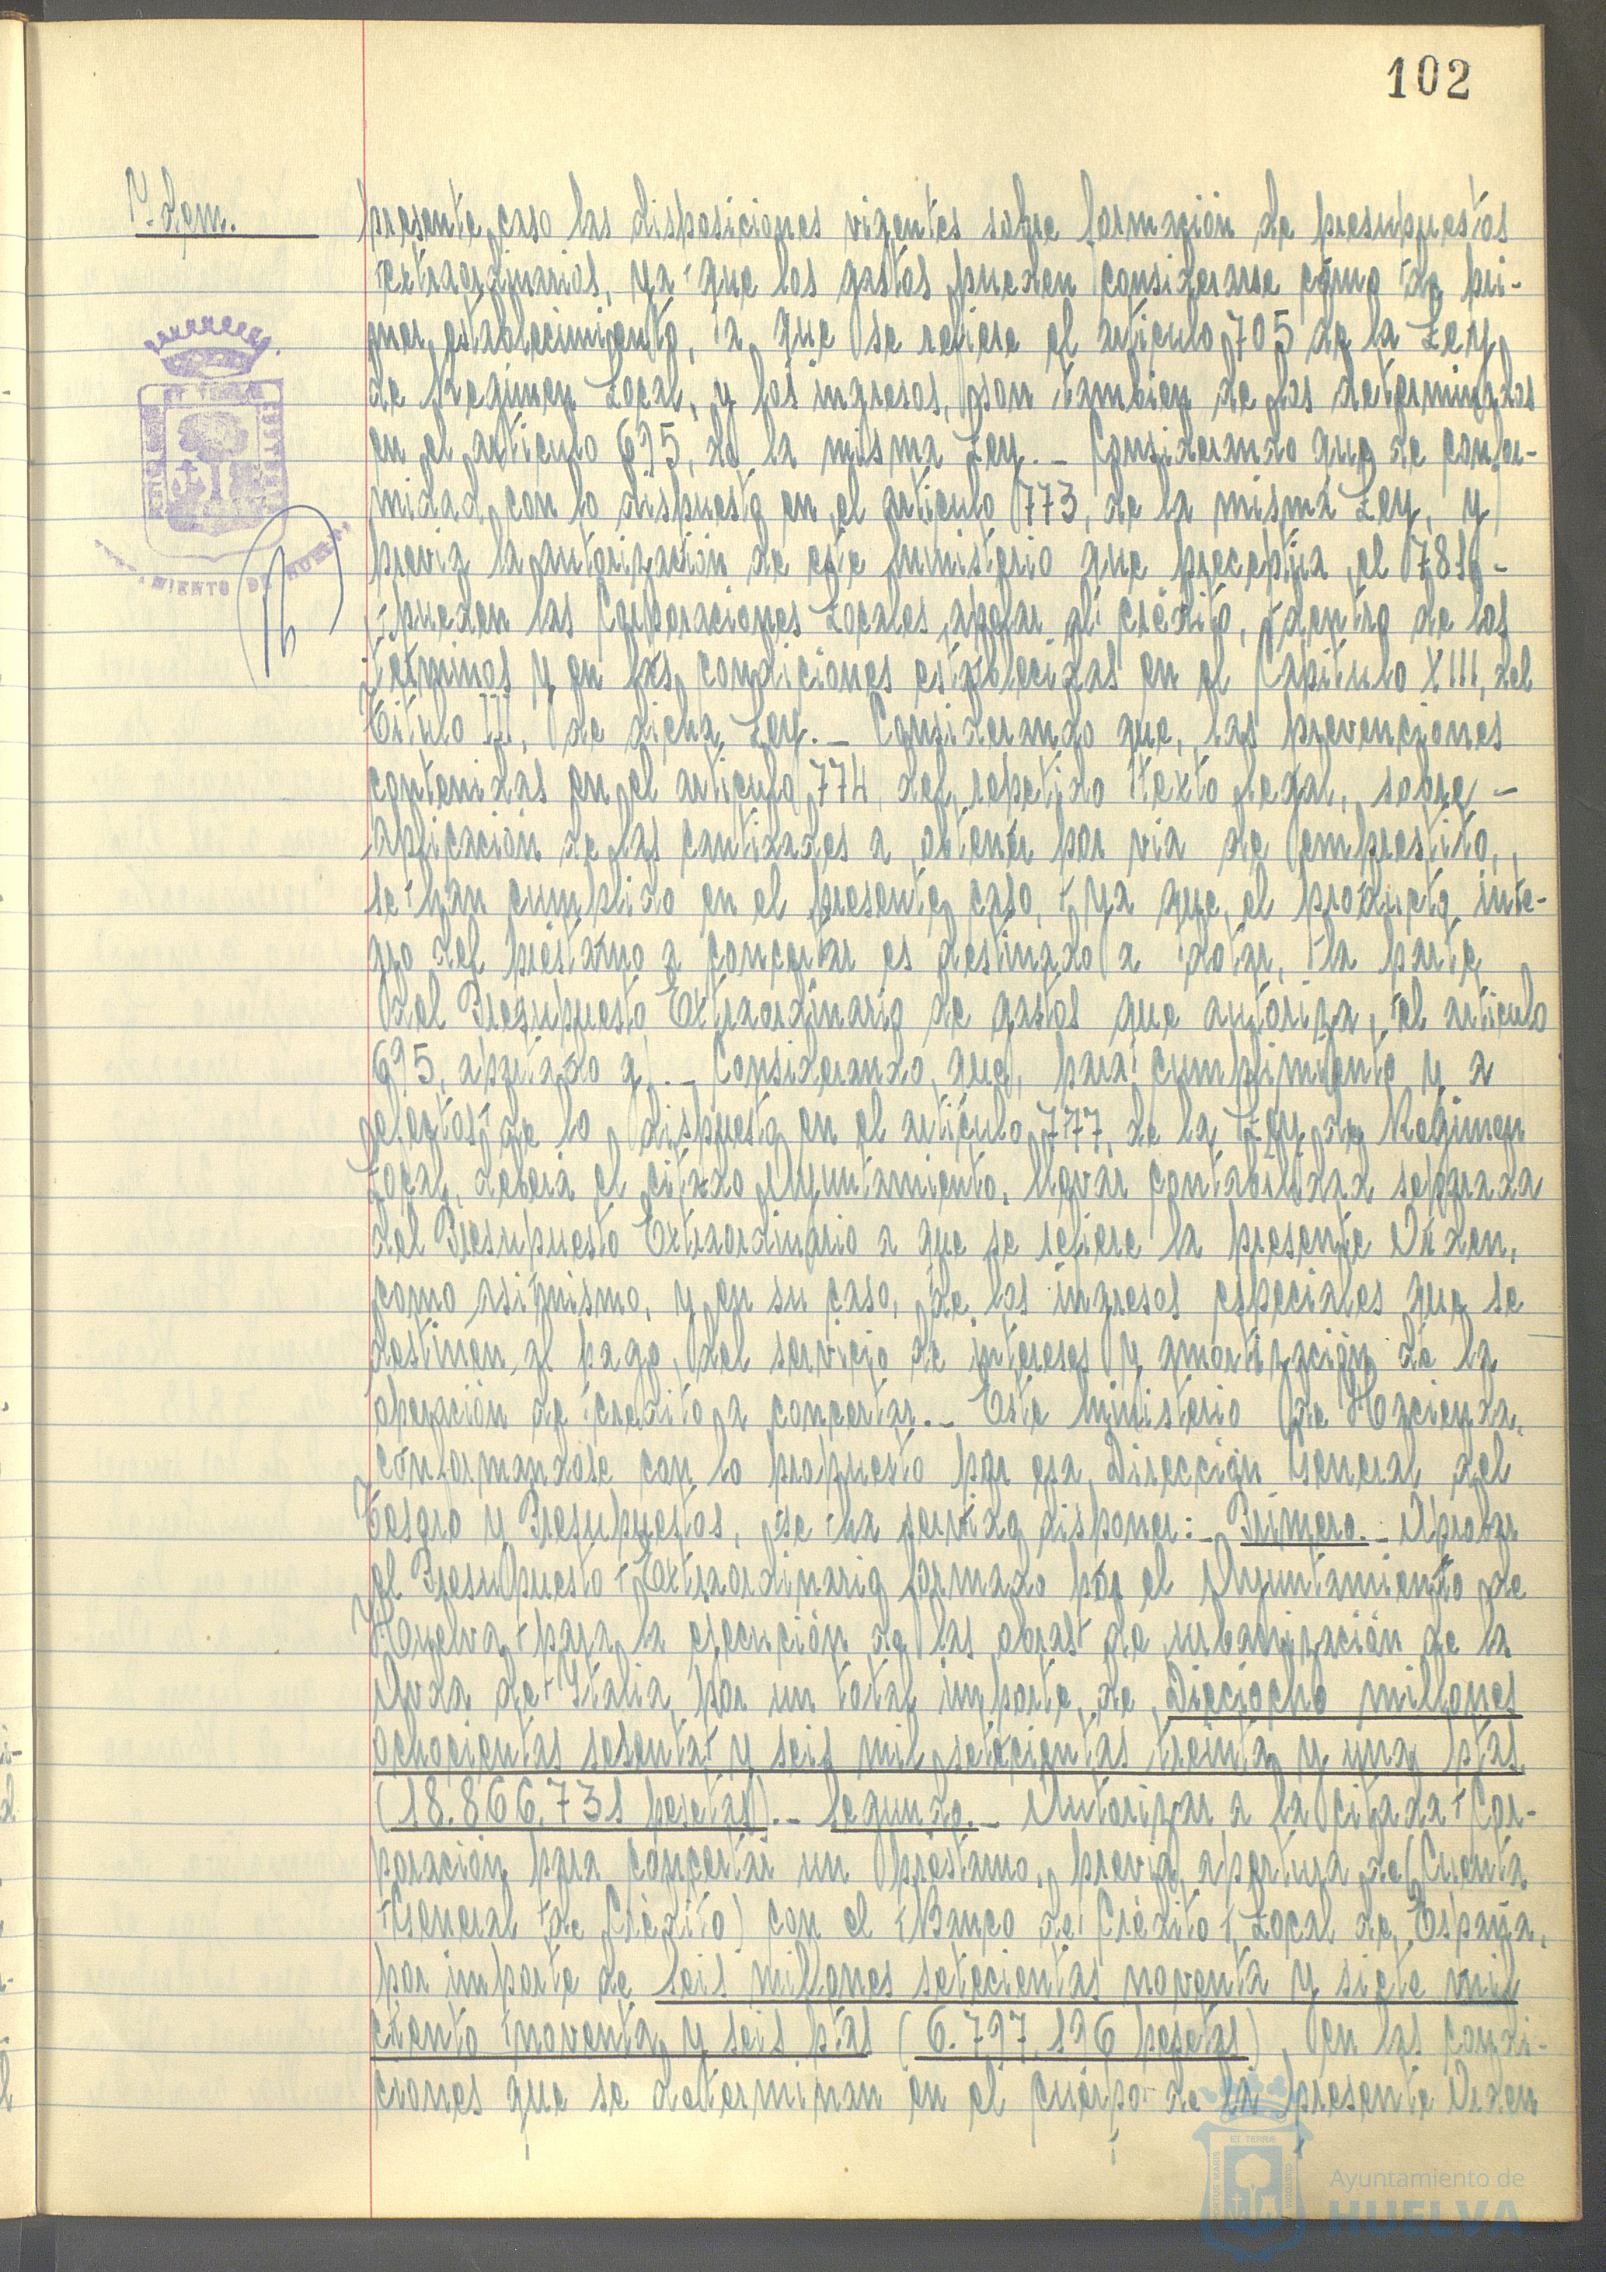 102
Y. dem.
presente caso las disposiciones vigentes sobre formación de presupuestos
extraordinarios, ya que los gastos pueden considerarse como de pri-
mer establecimiento, a que se refiere el artículo 705 de la Ley
de Régimen Local, y los ingresos, son tambien de los determinados
en el artículo 695, de la misma Ley._ Considerando que de confor-
midad con lo dispuesto en el artículo 773, de la misma Ley, y
previa la autorización de este Ministerio que preceptúa el 781, -
pueden las Corporaciones Locales apelar al crédito, dentro de los
términos y en las condiciones establecidas en el Capítulo XIII, del
Título III, de dicha Ley._ Considerando que, las prevenciones
contenidas en el artículo 774, del repetido texto legal, sobre -
aplicación de las cantidades a obtener por via de empréstito,
se han cumplido en el presente caso, ya que, el producto ínte-
gro del préstamo a concertar es destinado a dotar, la parte
del Presupuesto Extraordinario de gastos que autoriza, el artículo
695, apartado g)._ Considerando, que, para cumplimiento y a
efectos de lo dispuesto en el artículo 777, de la Ley de Régimen
Local, deberá el citado Ayuntamiento, llevar contabilidad separada
del Presupuesto Extraordinario a que se refiere la presente Orden,
como asimismo, y en su caso, de los ingresos especiales que se
destinen al pago, del servicio de intereses y amortización de la
operación de crédito a concertar._ Este Ministerio de Hacienda,
conformandose con lo propuesto por esa Dirección General del
Tesoro y Presupuestos, se ha servido disponer:_ Primero._ Aprobar
el Presupuesto Extraordinario formado por el Ayuntamiento de
Huelva para la ejecución de las obras de urbanización de la
Avda de Italia por un total importe de Dieciocho millones
ochocientas sesenta y seis mil setecientas treinta y una ptas
(18.866.731 pesetas)._ Segundo._ Autorizar a la citada Cor-
poración para concertar un préstamo, previa apertura de (Cuenta
General de Crédito) con el Banco de Crédito Local de España,
por importe de Seis millones setecientas noventa y siete mil
ciento noventa y seis ptas (6.797.196 pesetas), en las condi-
ciones que se determinan en el cuerpo de la presente Orden
Ayuntamiento de
HUELVA